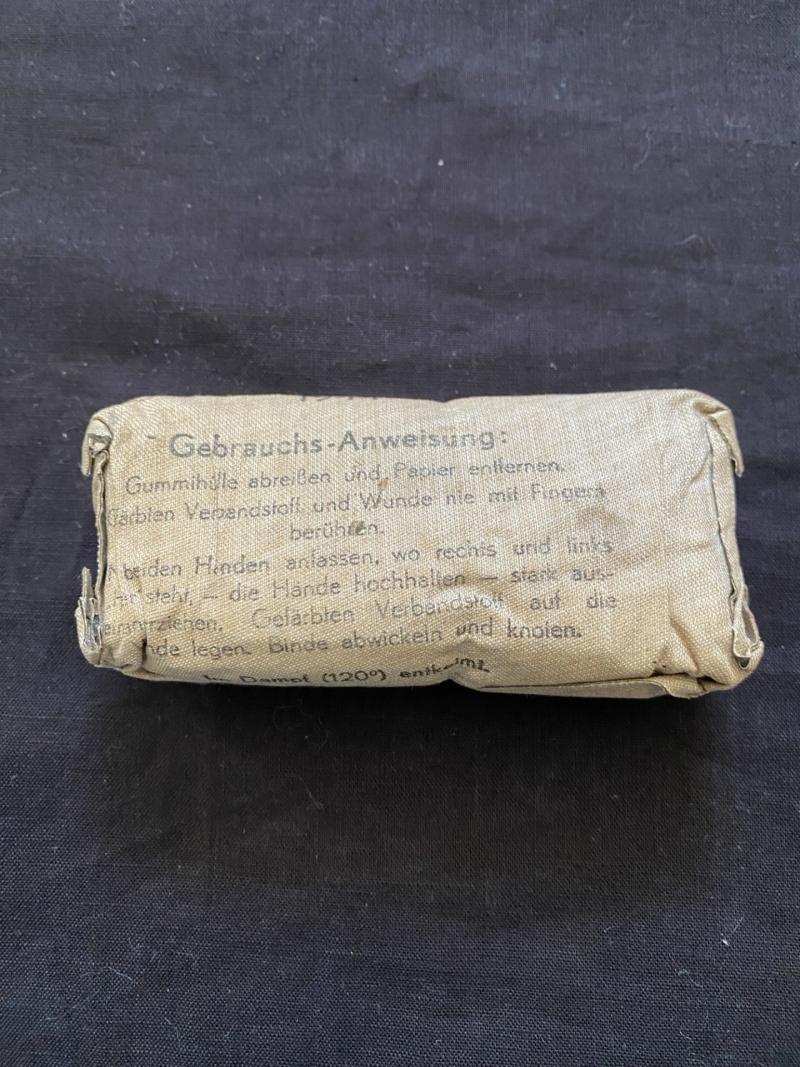 Gebrauchs-Anweisung:
Gummihülle abreißen und Papier entfernen.
färbten Verbandstoff und Wunde nie mit Fingern
berühren.
beiden Händen anfassen, wo rechts und links
hier steht, — die Hände hochhalten — stark aus-
einanderziehen. Gefärbten Verbandstoff auf die
nde legen. Binde abwickeln und knoten.
Im Dampf (120°) entkeimt.